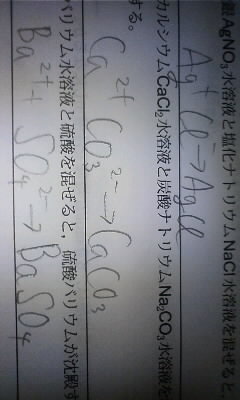 銀AgNO₃水溶液と塩化ナトリウムNaCl水溶液を混ぜると
Ag⁺ Cl⁻→AgCl
カルシウムCaCl₂水溶液と炭酸ナトリウムNa₂CO₃水溶液を
する。
Ca²⁺ CO₃²⁻→CaCO₃
バリウム水溶液と硫酸を混ぜると，硫酸バリウムが沈殿す
Ba²⁺+ SO₄²⁻→BaSO₄